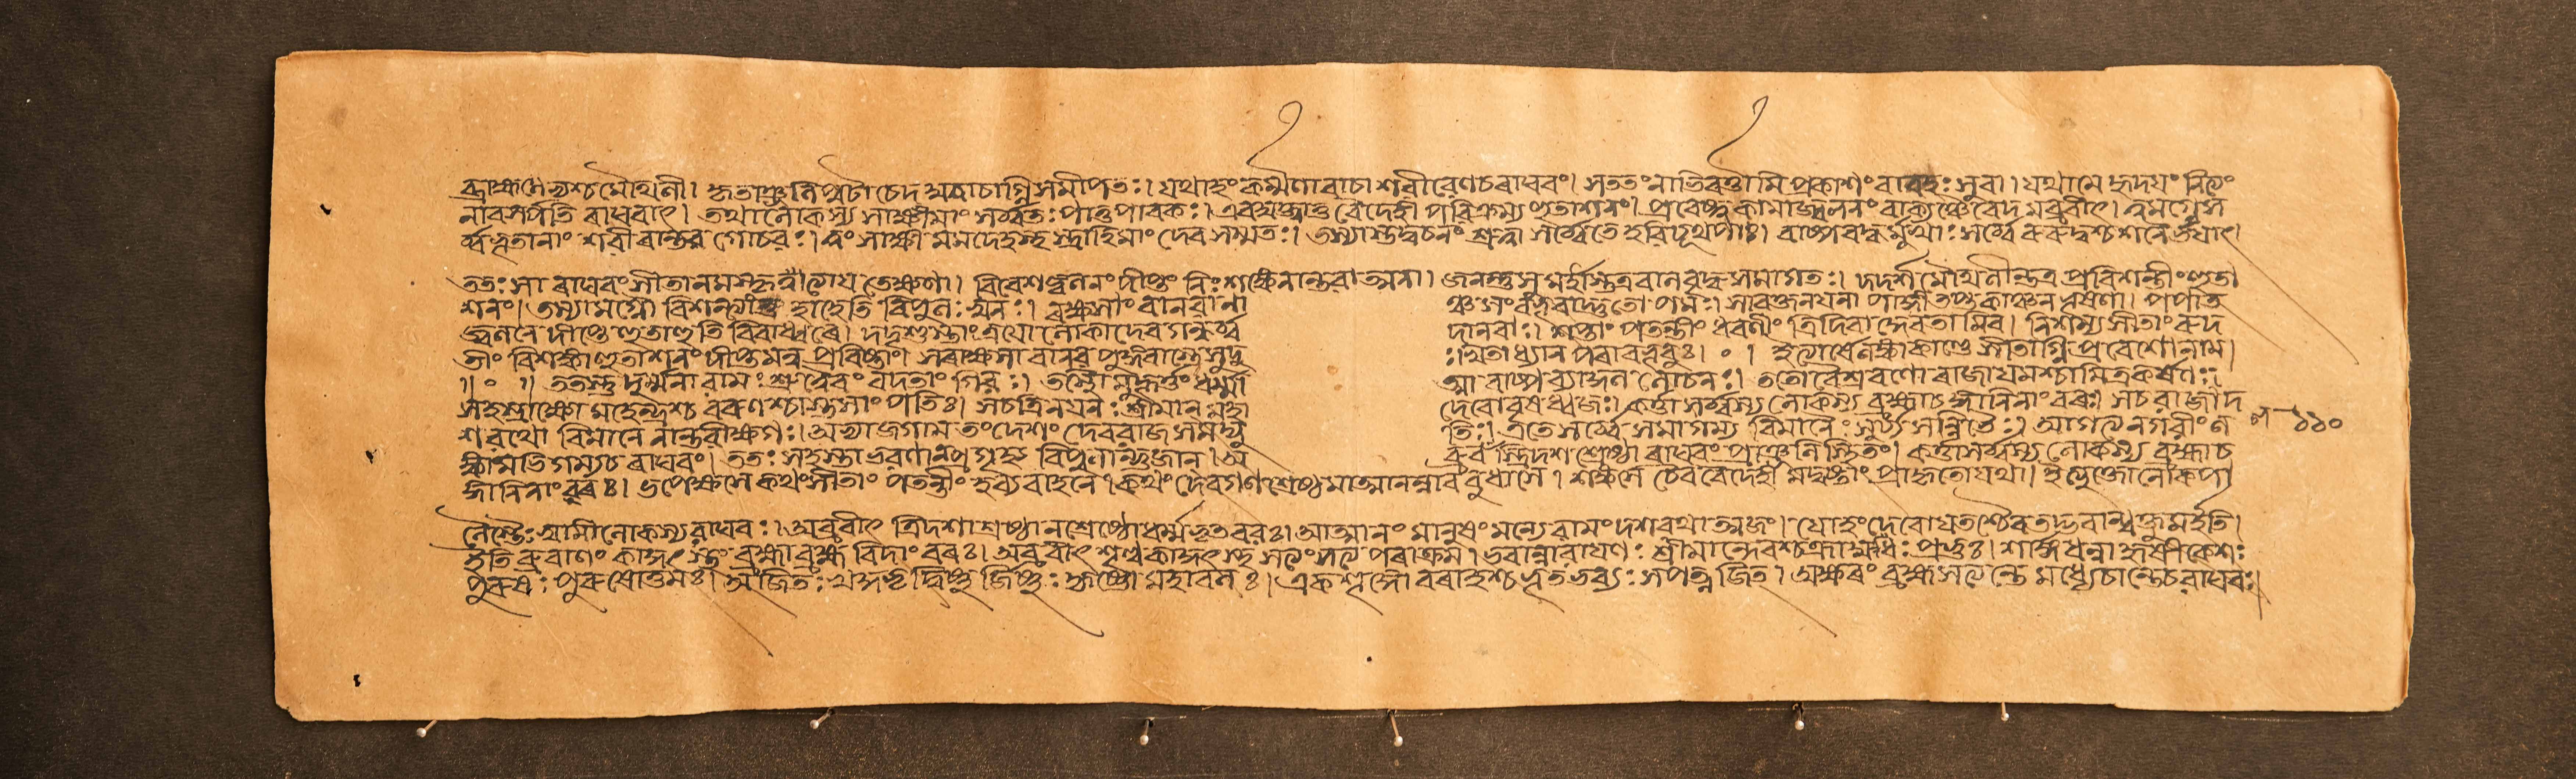 ব্রাহ্মণেভ্যশ্চ মৈথিলী। কৃতাঞ্জলিপুটা চেদমুবাচাগ্নিসমীপতঃ। যথাহং কর্ম্মণা বাচা শরীরেণ চ রাঘবং। সততং নাতিবর্ত্তামি প্রকাশং বা রহঃসু বা। যথা মে হৃদযং নিত্যং
নাপসর্পতি রাঘবাৎ। তথা লোকস্য সাক্ষী মাং সর্ব্বতঃ পাতু পাবকঃ। এবমুক্ত্বা তু বৈদেহী পরিক্রম্য হুতাশনং। প্রবেষ্টুকামা জ্বলনং বাক্যঞ্চৈবেদমব্রবীৎ। ত্বমগ্নে স
র্ব্বভূতানাং শরীরান্তরগোচরঃ। ত্বং সাক্ষী মম দেহস্থস্ত্রাহি মাং দেবসম্মতঃ। তস্যাস্তদ্বচনং শ্রুত্বা সর্ব্বে তে হরিযূথপাঃ। বাষ্পবদ্ধমুখাঃ সর্ব্বে রুরুদুশ্চ শনৈর্ভযাৎ।
ততঃ সা রাঘবং সীতা নমস্কৃত্বাযতেক্ষণা। বিবেশ জ্বলনং দীপ্তং নিঃশঙ্কেনান্তরাত্মনা। জনস্তু সুমহাংস্তত্র বালবৃদ্ধসমাগতঃ। দদর্শ মৈথিলীন্তত্র প্রবিশন্তীং হুতা
শনং। তস্যামগ্নৌ বিশন্ত্যান্তু হাহেতি বিপুলঃ স্বনঃ। রক্ষসাং বানরানা ঞ্চ সংবভূবাদ্ভুতোপমঃ। সা তপ্তনযনা পাঙ্গী তপ্তকাঞ্চনভূষণা। পপাত
জ্বলনে দীপ্তে হুতাহুতিরিবাধ্বরে। দদৃশুস্তাং ত্রযো লোকা দেবগন্ধর্ব্ব দানবাঃ। শপ্তাং পতন্তীং ধরণীং ত্রিদিবাদ্দেবতামিব। নিশম্য সীতাং রুদ
তীং বিশঙ্কাং হুতাশনং দীপ্তমনুপ্রবিষ্টাং। সরাক্ষসা বানরপুঙ্গবাস্তে সুদুঃ খিতা ধ্যানপরা বভূবুঃ। ০ । ইত্যার্ষে লঙ্কাকাণ্ডে সীতাগ্নিপ্রবেশো নাম।
।। ০ ।। ততস্তু দুর্ম্মনা রামঃ শ্রুত্বৈবং বদতাং গিরঃ। তস্থৌ মুহূর্ত্তং ধর্ম্মা ত্মা বাষ্পব্যাকুললোচনঃ। ততো বৈশ্রবণো রাজা যমশ্চামিত্রকর্ষণঃ।
সহস্রাক্ষো মহেন্দ্রশ্চ বরুণশ্চাম্ভসাং পতিঃ। স চ ত্রিনযনঃ শ্রীমান্ মহা দেবো বৃষধ্বজঃ। কর্ত্তা সর্ব্বস্য লোকস্য ব্রহ্মা চ জ্ঞানিনাং বরঃ। স চ রাজা দ
শরথো বিমানেনান্তরীক্ষগঃ। অভ্যাজগাম তং দেশং দেবরাজসমদ্যু তিঃ। এতে সর্ব্বে সমাগম্য বিমানৈঃ সূর্য্যসন্নিভৈঃ। আগত্য নগরীং ল ল ১১০
ঙ্কামভিগম্য চ রাঘবং। ততঃ সহস্তাভরণান্ প্রগৃহ্য বিপুলান্ ভুজান্। অ ব্রুবংস্ত্রিদশশ্রেষ্ঠা রাঘবং প্রাঞ্জলিস্থিতং। কর্ত্তা সর্ব্বস্য লোকস্য ব্রহ্মা চ
জ্ঞানিনাং বরঃ। উপেক্ষসে কথং সীতাং পতন্তীং হব্যবাহনে। কথং দেবগণশ্রেষ্ঠমাত্মানন্নাববুধ্যসে। শঙ্কসে চৈব বৈদেহী মদ্দৃষ্টাং প্রাকৃতো যথা। ইত্যুক্তো লোকপা
লৈস্তৈঃ স্বামী লোকস্য রাঘবঃ। অব্রবীৎ ত্রিদশান্ শ্রেষ্ঠান্ শ্রেষ্ঠো ধর্ম্মভৃতাং বরঃ। আত্মানং মানুষং মন্যে রামং দশরথাত্মজং। যোহং দেবো যতশ্চৈব তদ্ভবান্ বক্তুমর্হতি।
ইতি ব্রুবাণং কাকুৎস্থং ব্রহ্মা ব্রহ্মবিদাং বরঃ। অব্রবীৎ শৃণু কাকুৎস্থ সত্যং সত্যপরাক্রম। ভবান্নারাযণঃ শ্রীমান্দেবশ্চক্রাযুধঃ প্রভুঃ। শার্ঙ্গধন্বা হৃষীকেশঃ
পুরুষঃ পুরুষোত্তমঃ। অজিতঃ খড়্গধৃগ্বিষ্ণুর্জিষ্ণুঃ কৃষ্ণো মহাবলঃ। একশৃঙ্গো বরাহশ্চ ভূতভব্যঃ সপত্নজিৎ। অক্ষরং ব্রহ্ম সত্যন্তে মধ্যে চান্তে চ রাঘবঃ।